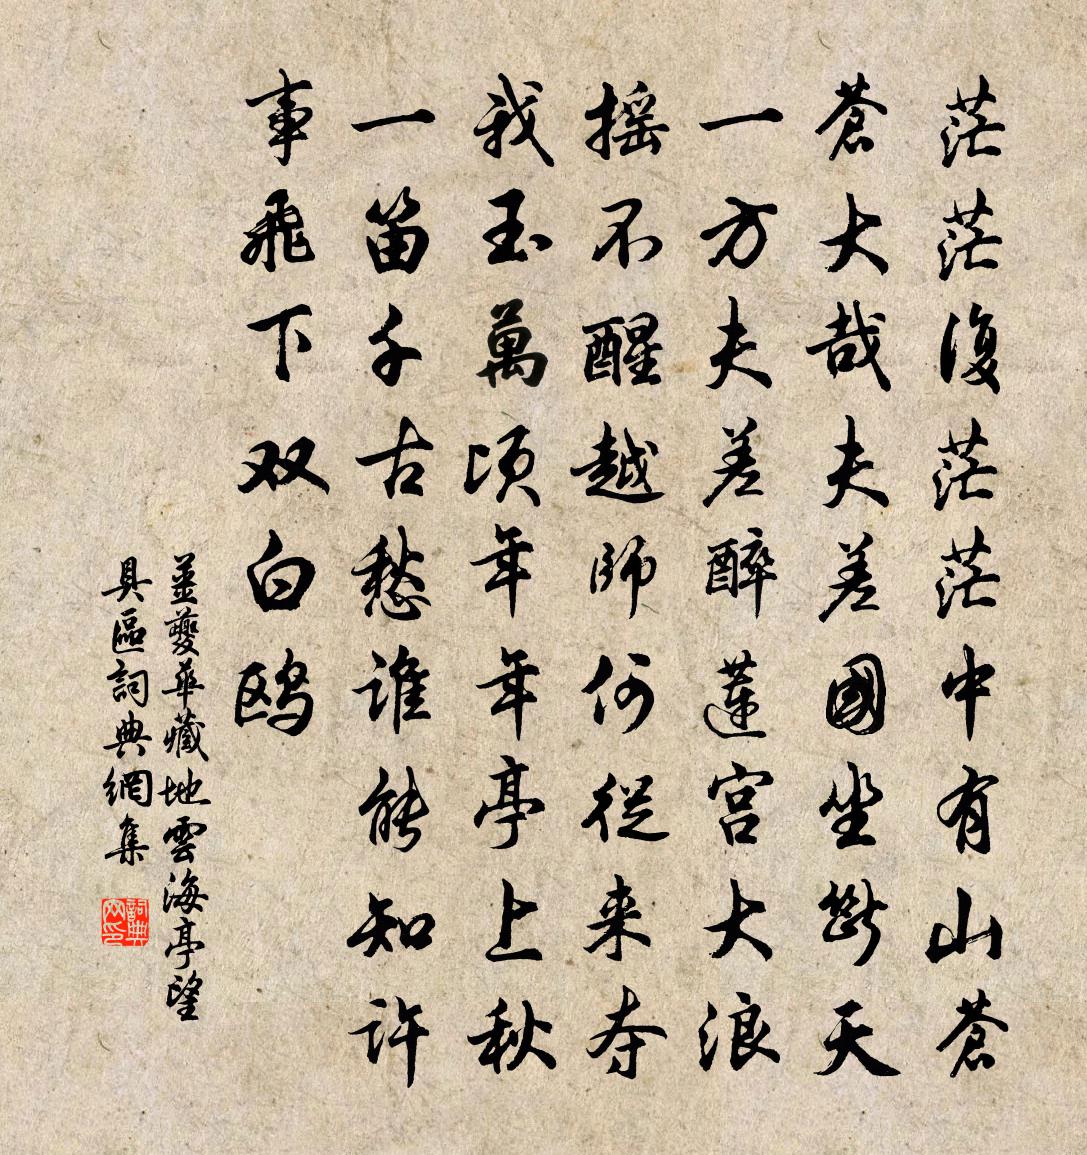 茫茫復茫茫中有山蒼
蒼大哉夫差國坐斷天
一方夫差醉蓮宫大浪
摇不醒越師何從来夺
我玉萬頃年年亭上秋
一笛千古愁谁能知许
事飛下双白鸥
姜夔華藏地雲海亭望
具區詞典網集
詞典网印